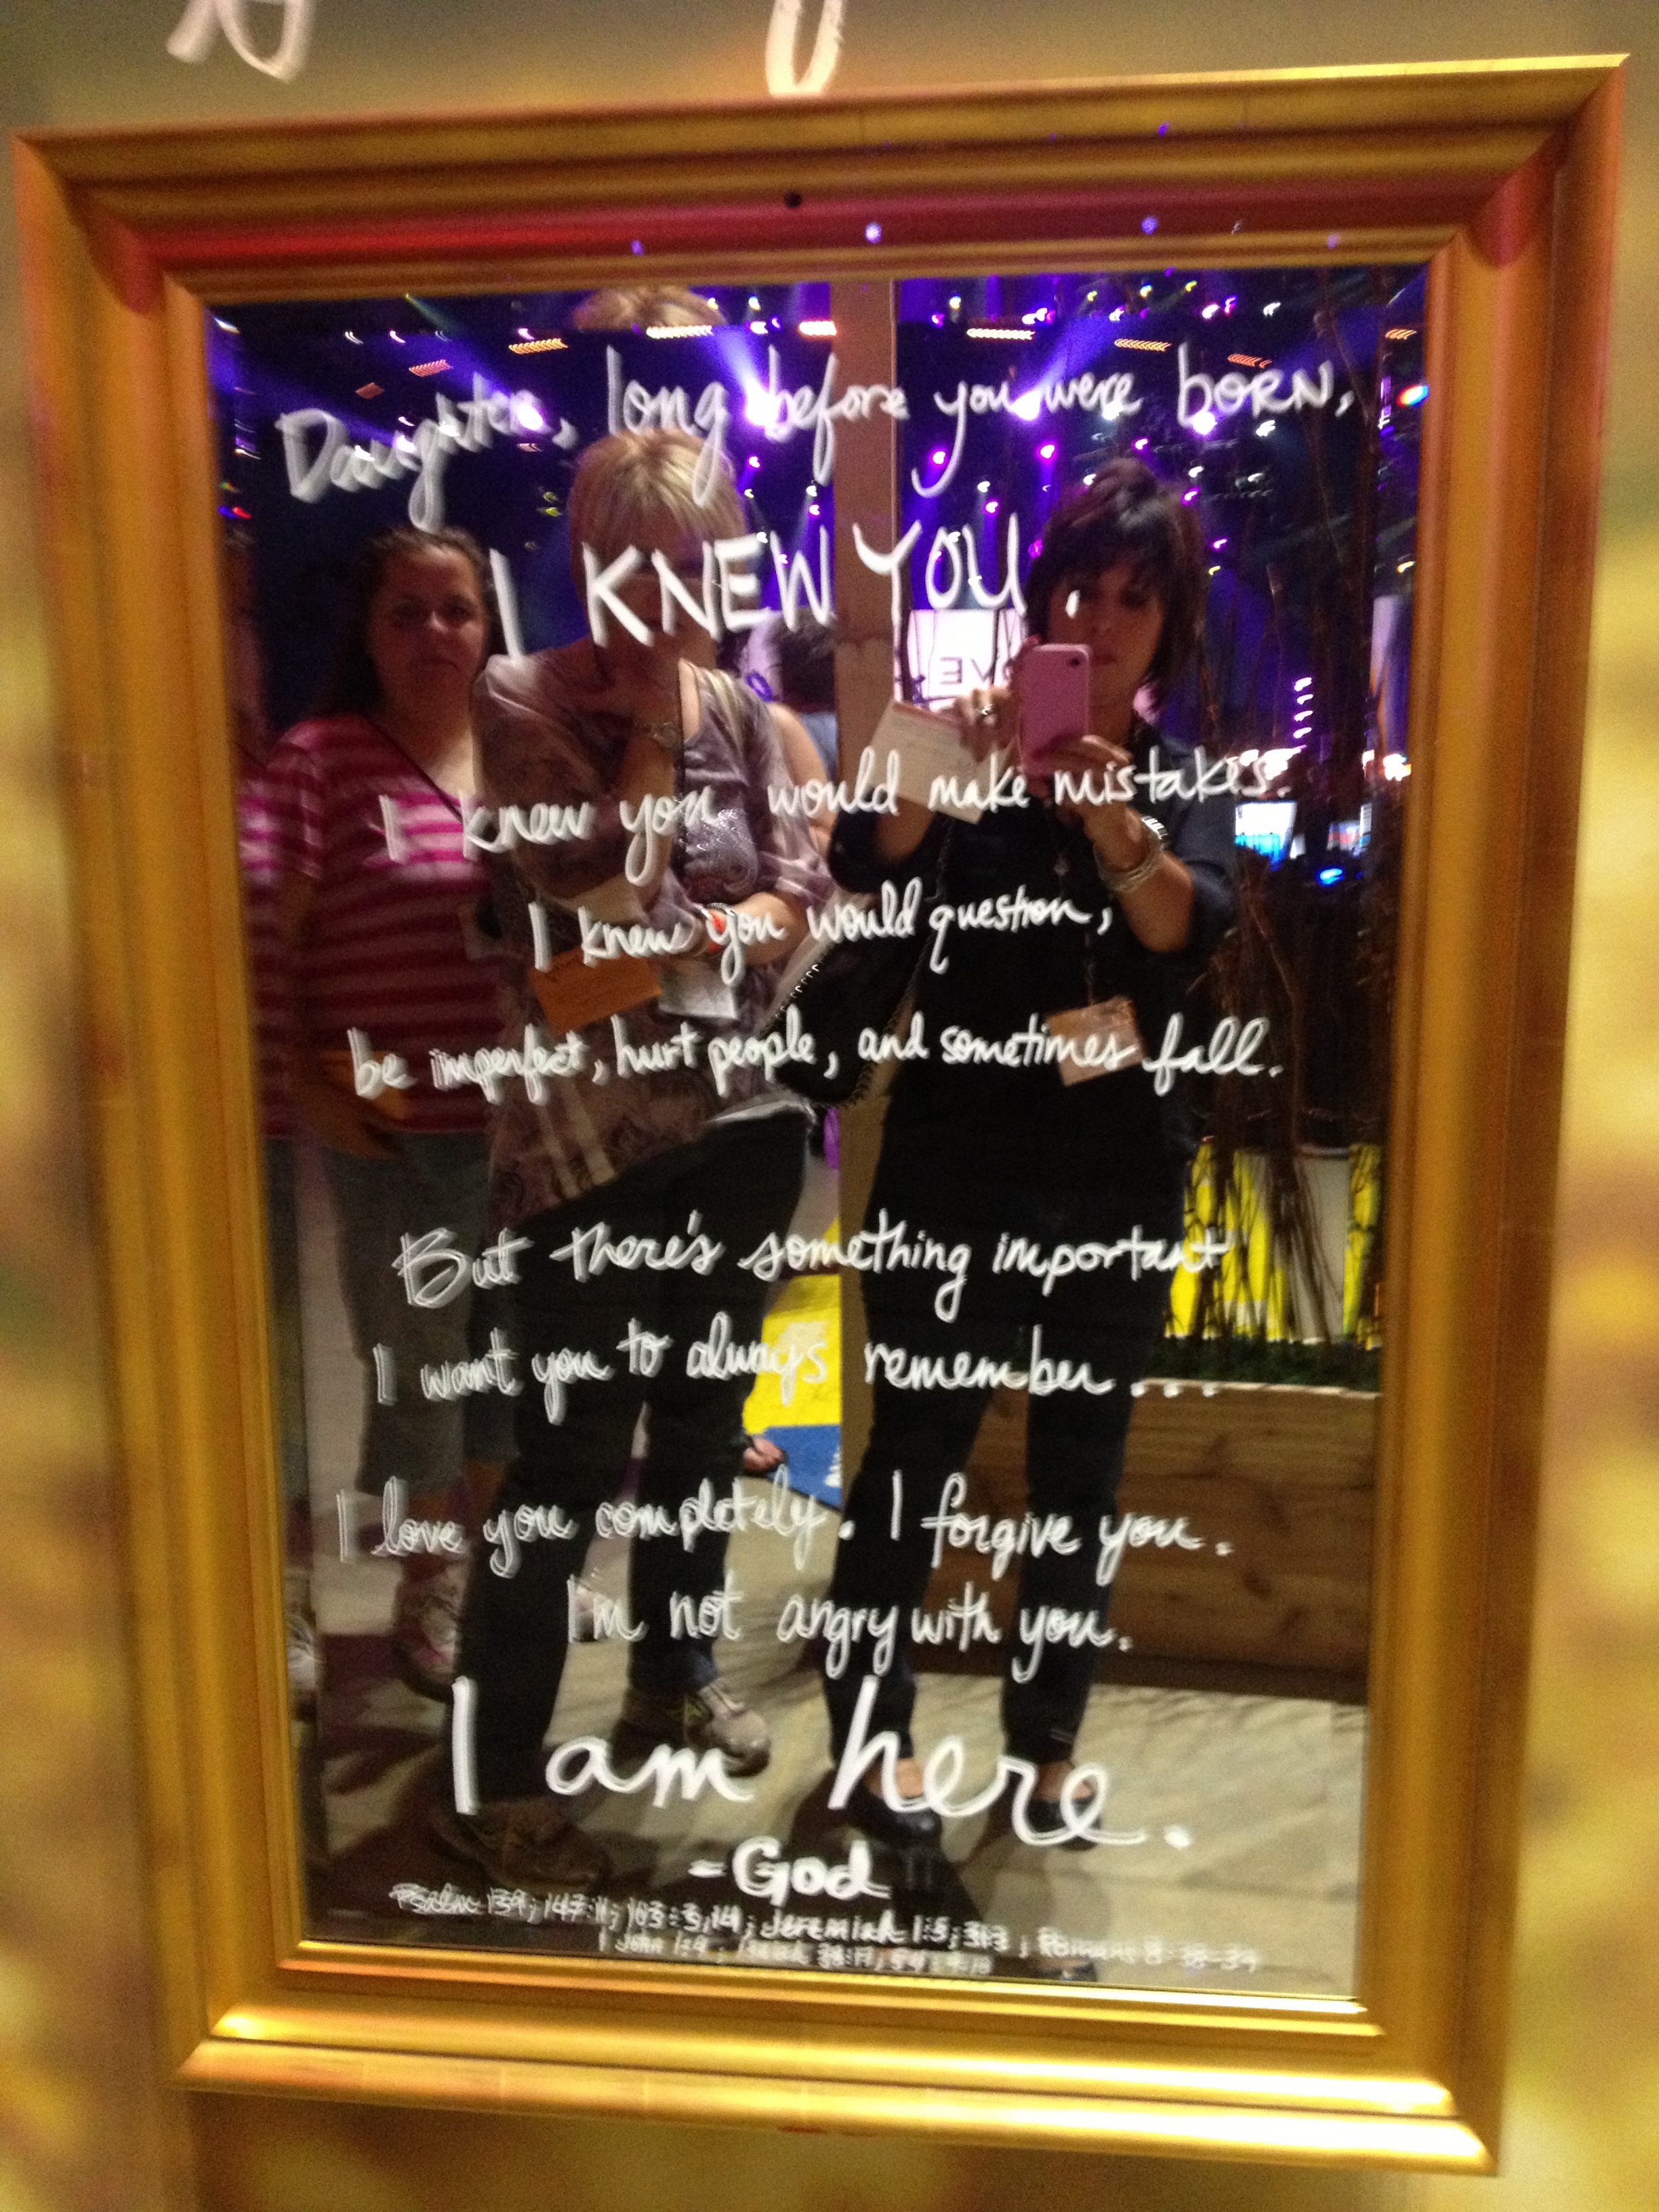 Daughter, long before you were BORN,
I KNEW YOU.
I knew you would make mistakes.
I knew you would question,
be imperfect, hurt people, and sometimes fall.
But there's something important
I want you to always remember...
I love you completely. I forgive you.
I'm not angry with you.
I am here.
-God
Psalm 139; 147:11; 103:3,14; Jeremiah 1:5; 31:3; Romans 8:38-39
1 John 1:9; Isaiah 38:17; 54:9-10